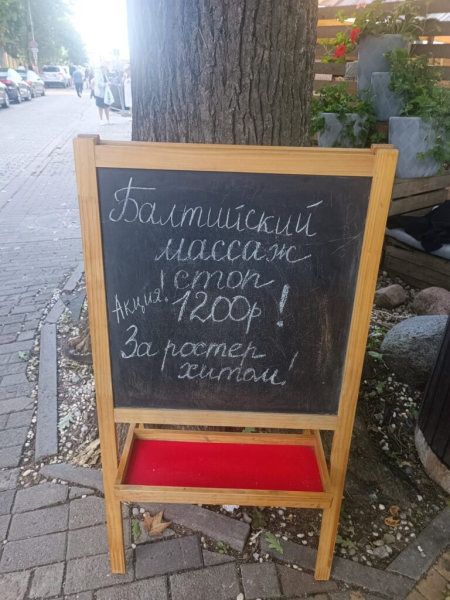 Балтийский
массаж
стоп
Акция! 1200р!
За ростер
хитом!